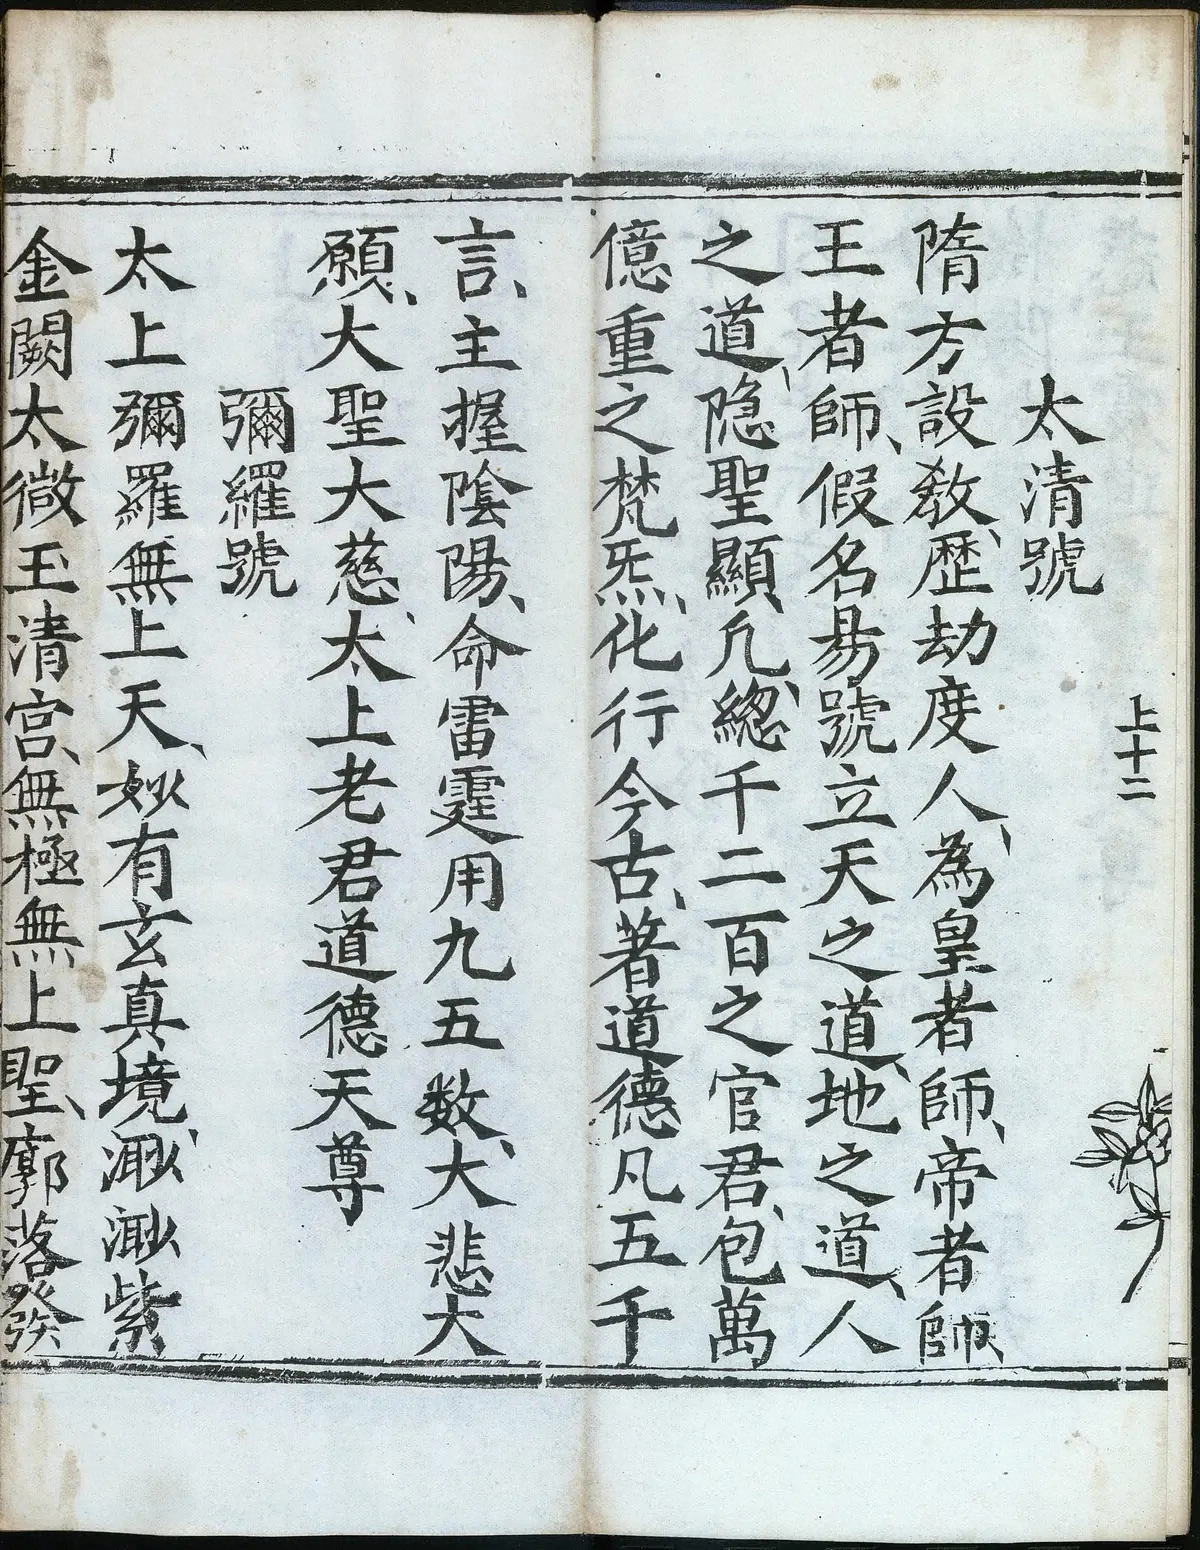 上十二
太清號
隋方設教、歷劫度人、為皇者師、帝者師、
王者師、假名易號立天之道、地之道、人
之道、隐聖顯凢、総千二百之官君、包萬
億重之梵炁、化行今古、著道德凡五千
言、主握陰陽、命雷霆用九五数、大悲大
願、大聖大慈、太上老君道德天尊
彌羅號
太上彌羅無上天、妙有玄真境、渺渺紫
金闕太微玉清宮、無極無上聖、廓落發